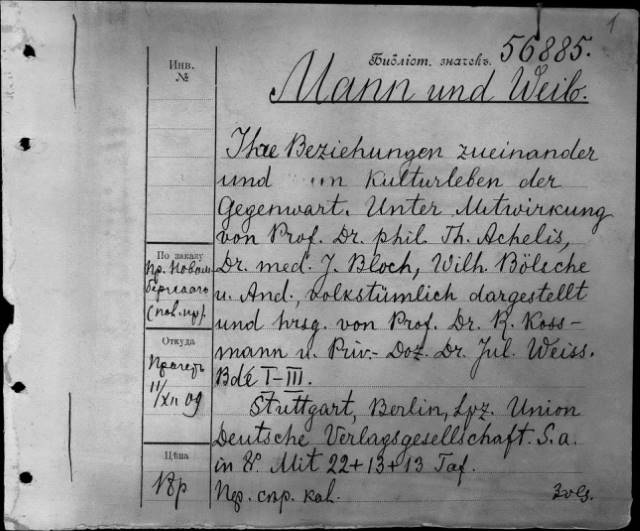 1
56885.
Инв.
№
Библіот. значекъ.
Mann und Weib.
Ihre Beziehungen zueinander
und zum Kulturleben der
Gegenwart. Unter Mitwirkung
von Prof. Dr. phil. Th. Achelis,
Dr. med. J. Bloch, Wilh. Bölsche
u. And., volkstümlich dargestellt
und hrsg. von Prof. Dr. R. Koss-
mann u. Priv.- Doz. Dr. Jul. Weiss.
Bde I-III.
Stuttgart, Berlin, Lpz. Union
Deutsche Verlagsgesellschaft. S. a.
in 8°. Mit 22+13+13 Taf.
По заказу
Откуда
11/XII 09
Цѣна
18р